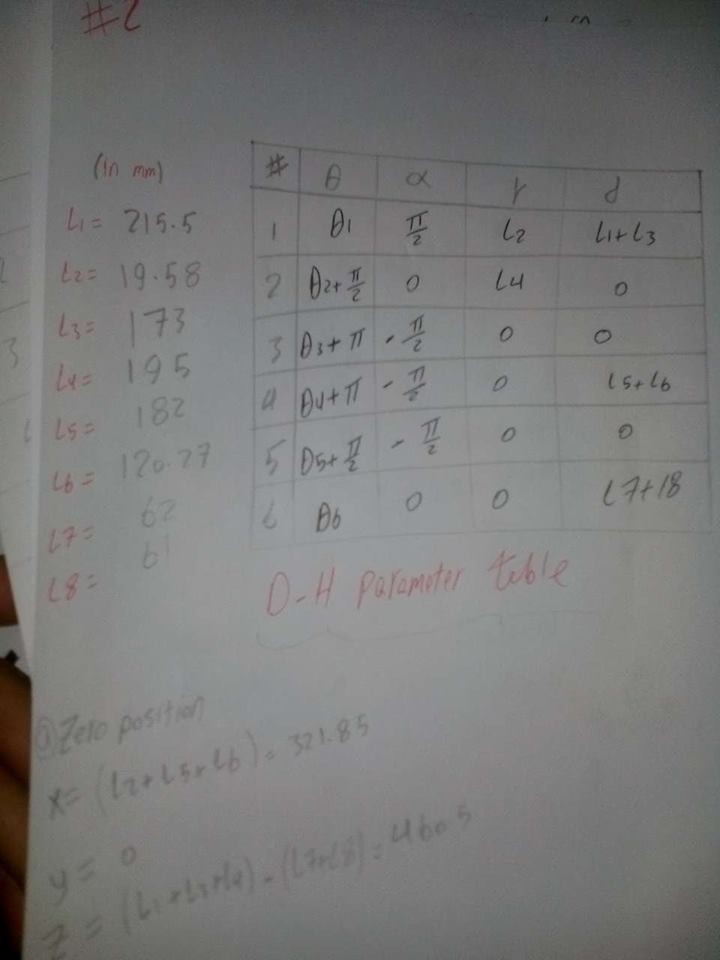 #2
(In mm)
L1= 215.5
L2= 19.58
L3= 173
L4= 195
L5= 182
L6= 120.27
L7= 62
L8= 61
# θ α r d
1 θ1 π/2 L2 L1+L3
2 θ2+π/2 0 L4 0
3 θ3+π -π/2 0 0
4 θ4+π -π/2 0 L5+L6
5 θ5+π/2 -π/2 0 0
6 θ6 0 0 L7+L8
D-H Parameter table
① Zero position
x= (L2+L5+L6)= 321.85
y= 0
z= (L1+L3+L4)-(L7+L8)=460.5